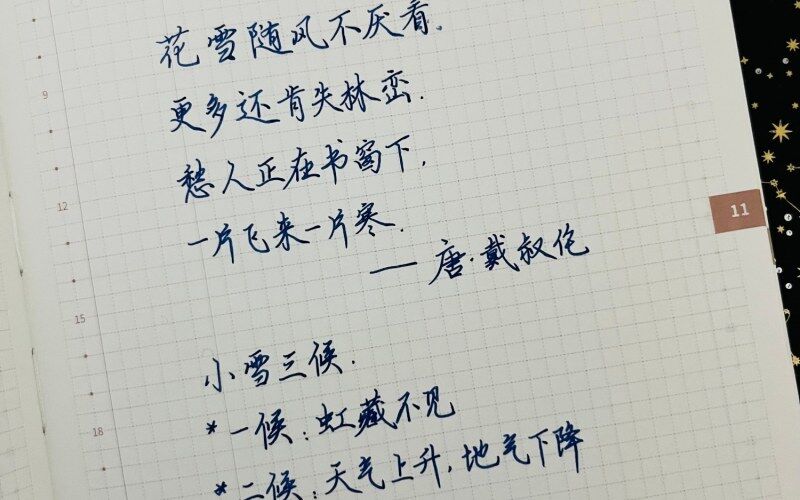 花雪随风不厌看.
更多还肯失林峦.
愁人正在书窗下,
一片飞来一片寒.
—— 唐·戴叔伦
小雪三候.
* 一候:虹藏不见
* 二候:天气上升,地气下降
9
12
15
18
11